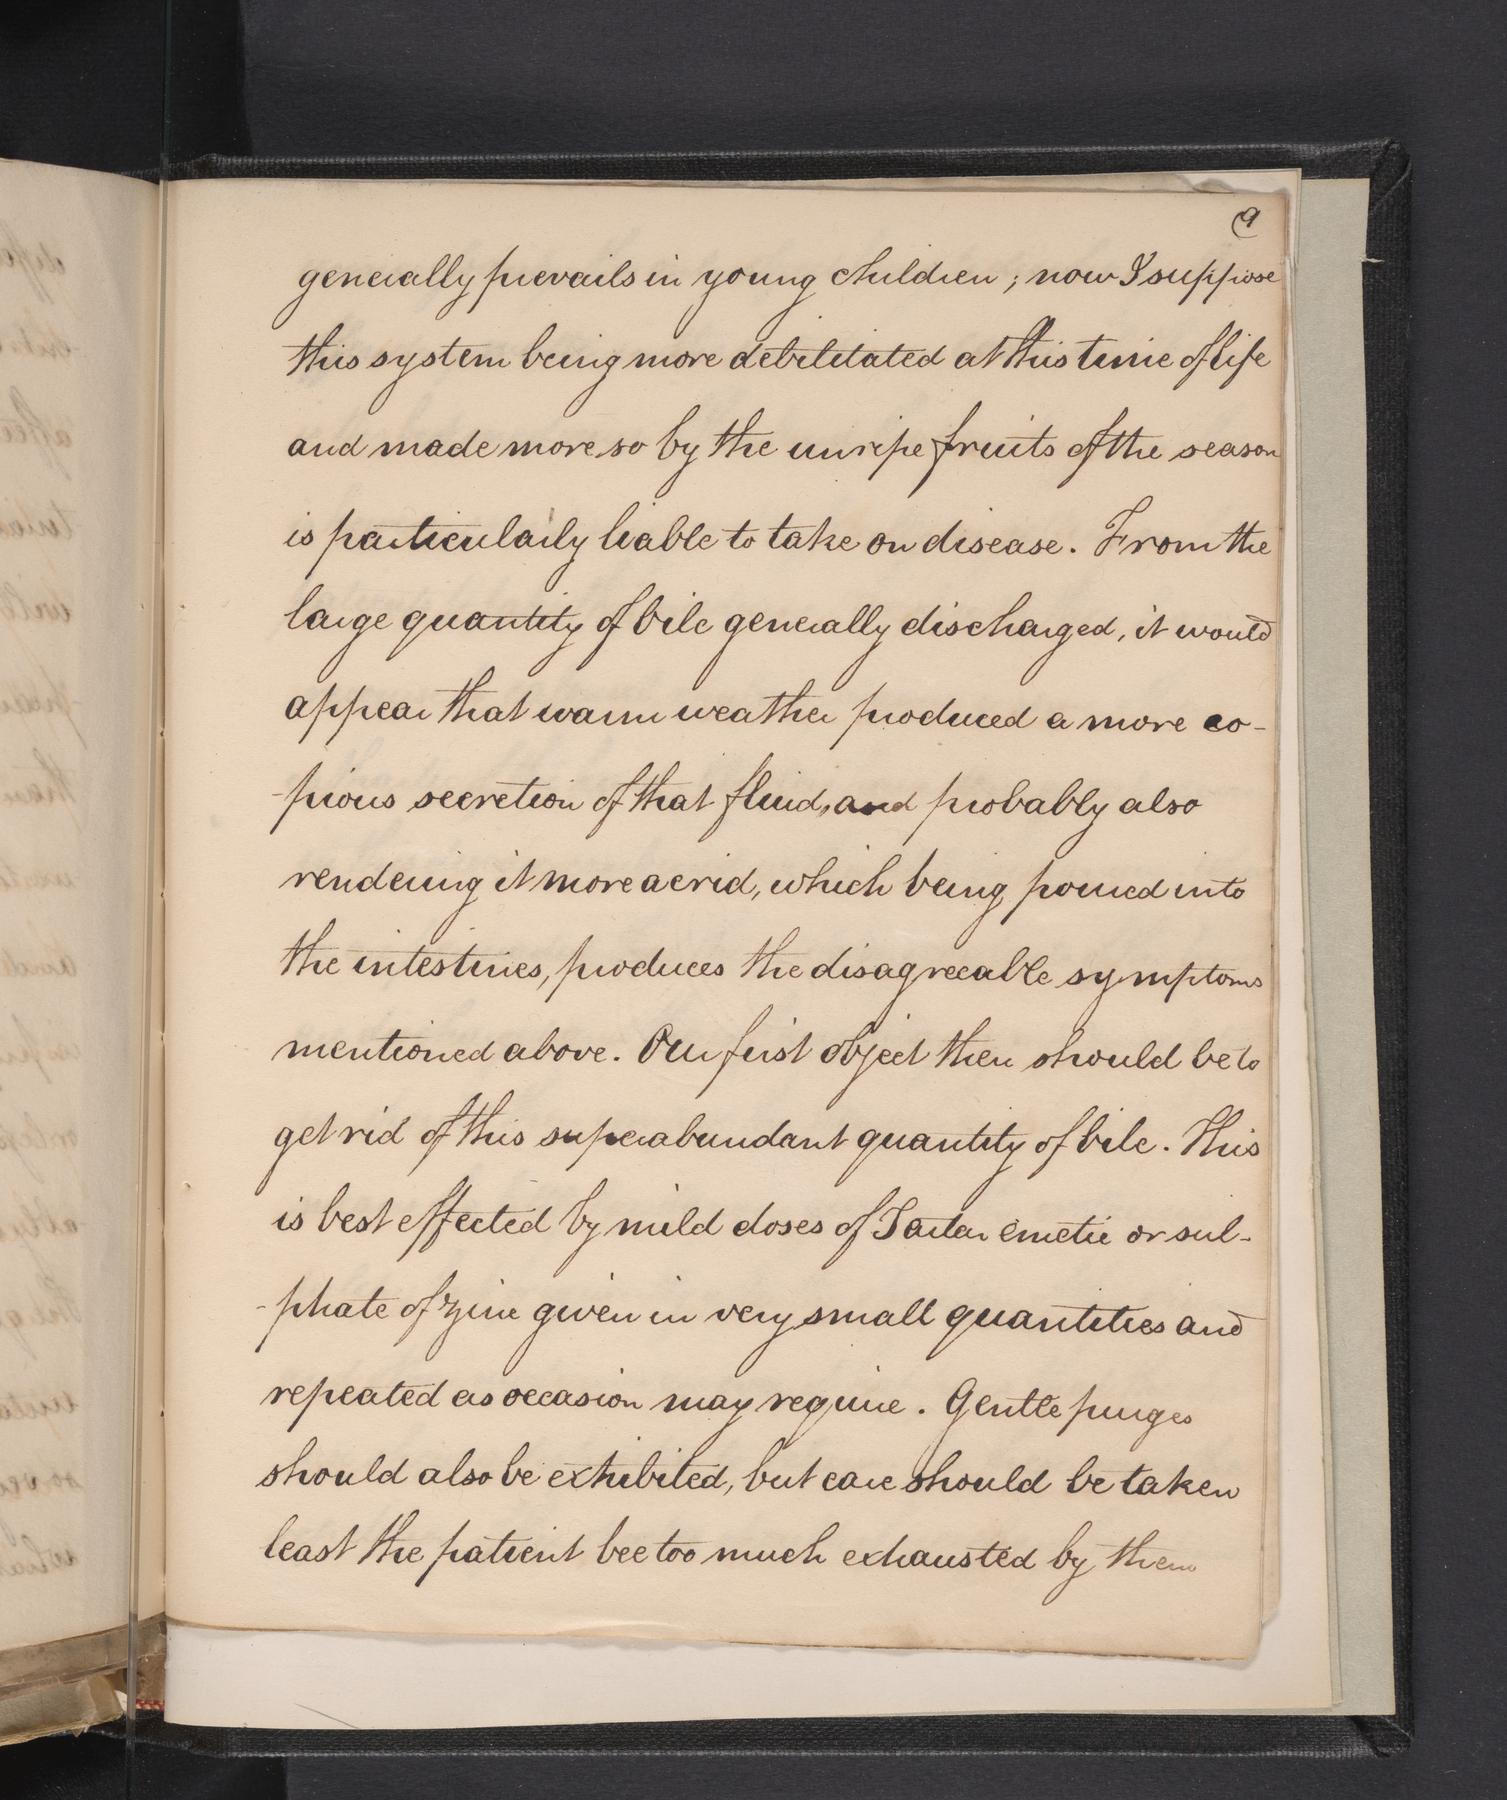 9
generally prevails in young children; now I suppose
this system being more debilitated at this time of life
and made more so by the unripe fruits of the season
is particularly liable to take on disease. From the
large quantity of bile generally discharged, it would
appear that warm weather produced a more co-
-pious secretion of that fluid, and probably also
rendering it more acrid, which being poured into
the intestines, produces the disagreeable symptoms
mentioned above. Our first object then should be to
get rid of this superabundant quantity of bile. This
is best effected by mild doses of Tartar emetic or sul-
-phate of zinc given in very small quantities and
repeated as occasion may require. Gentle purges
should also be exhibited, but care should be taken
least the patient bee too much exhausted by them